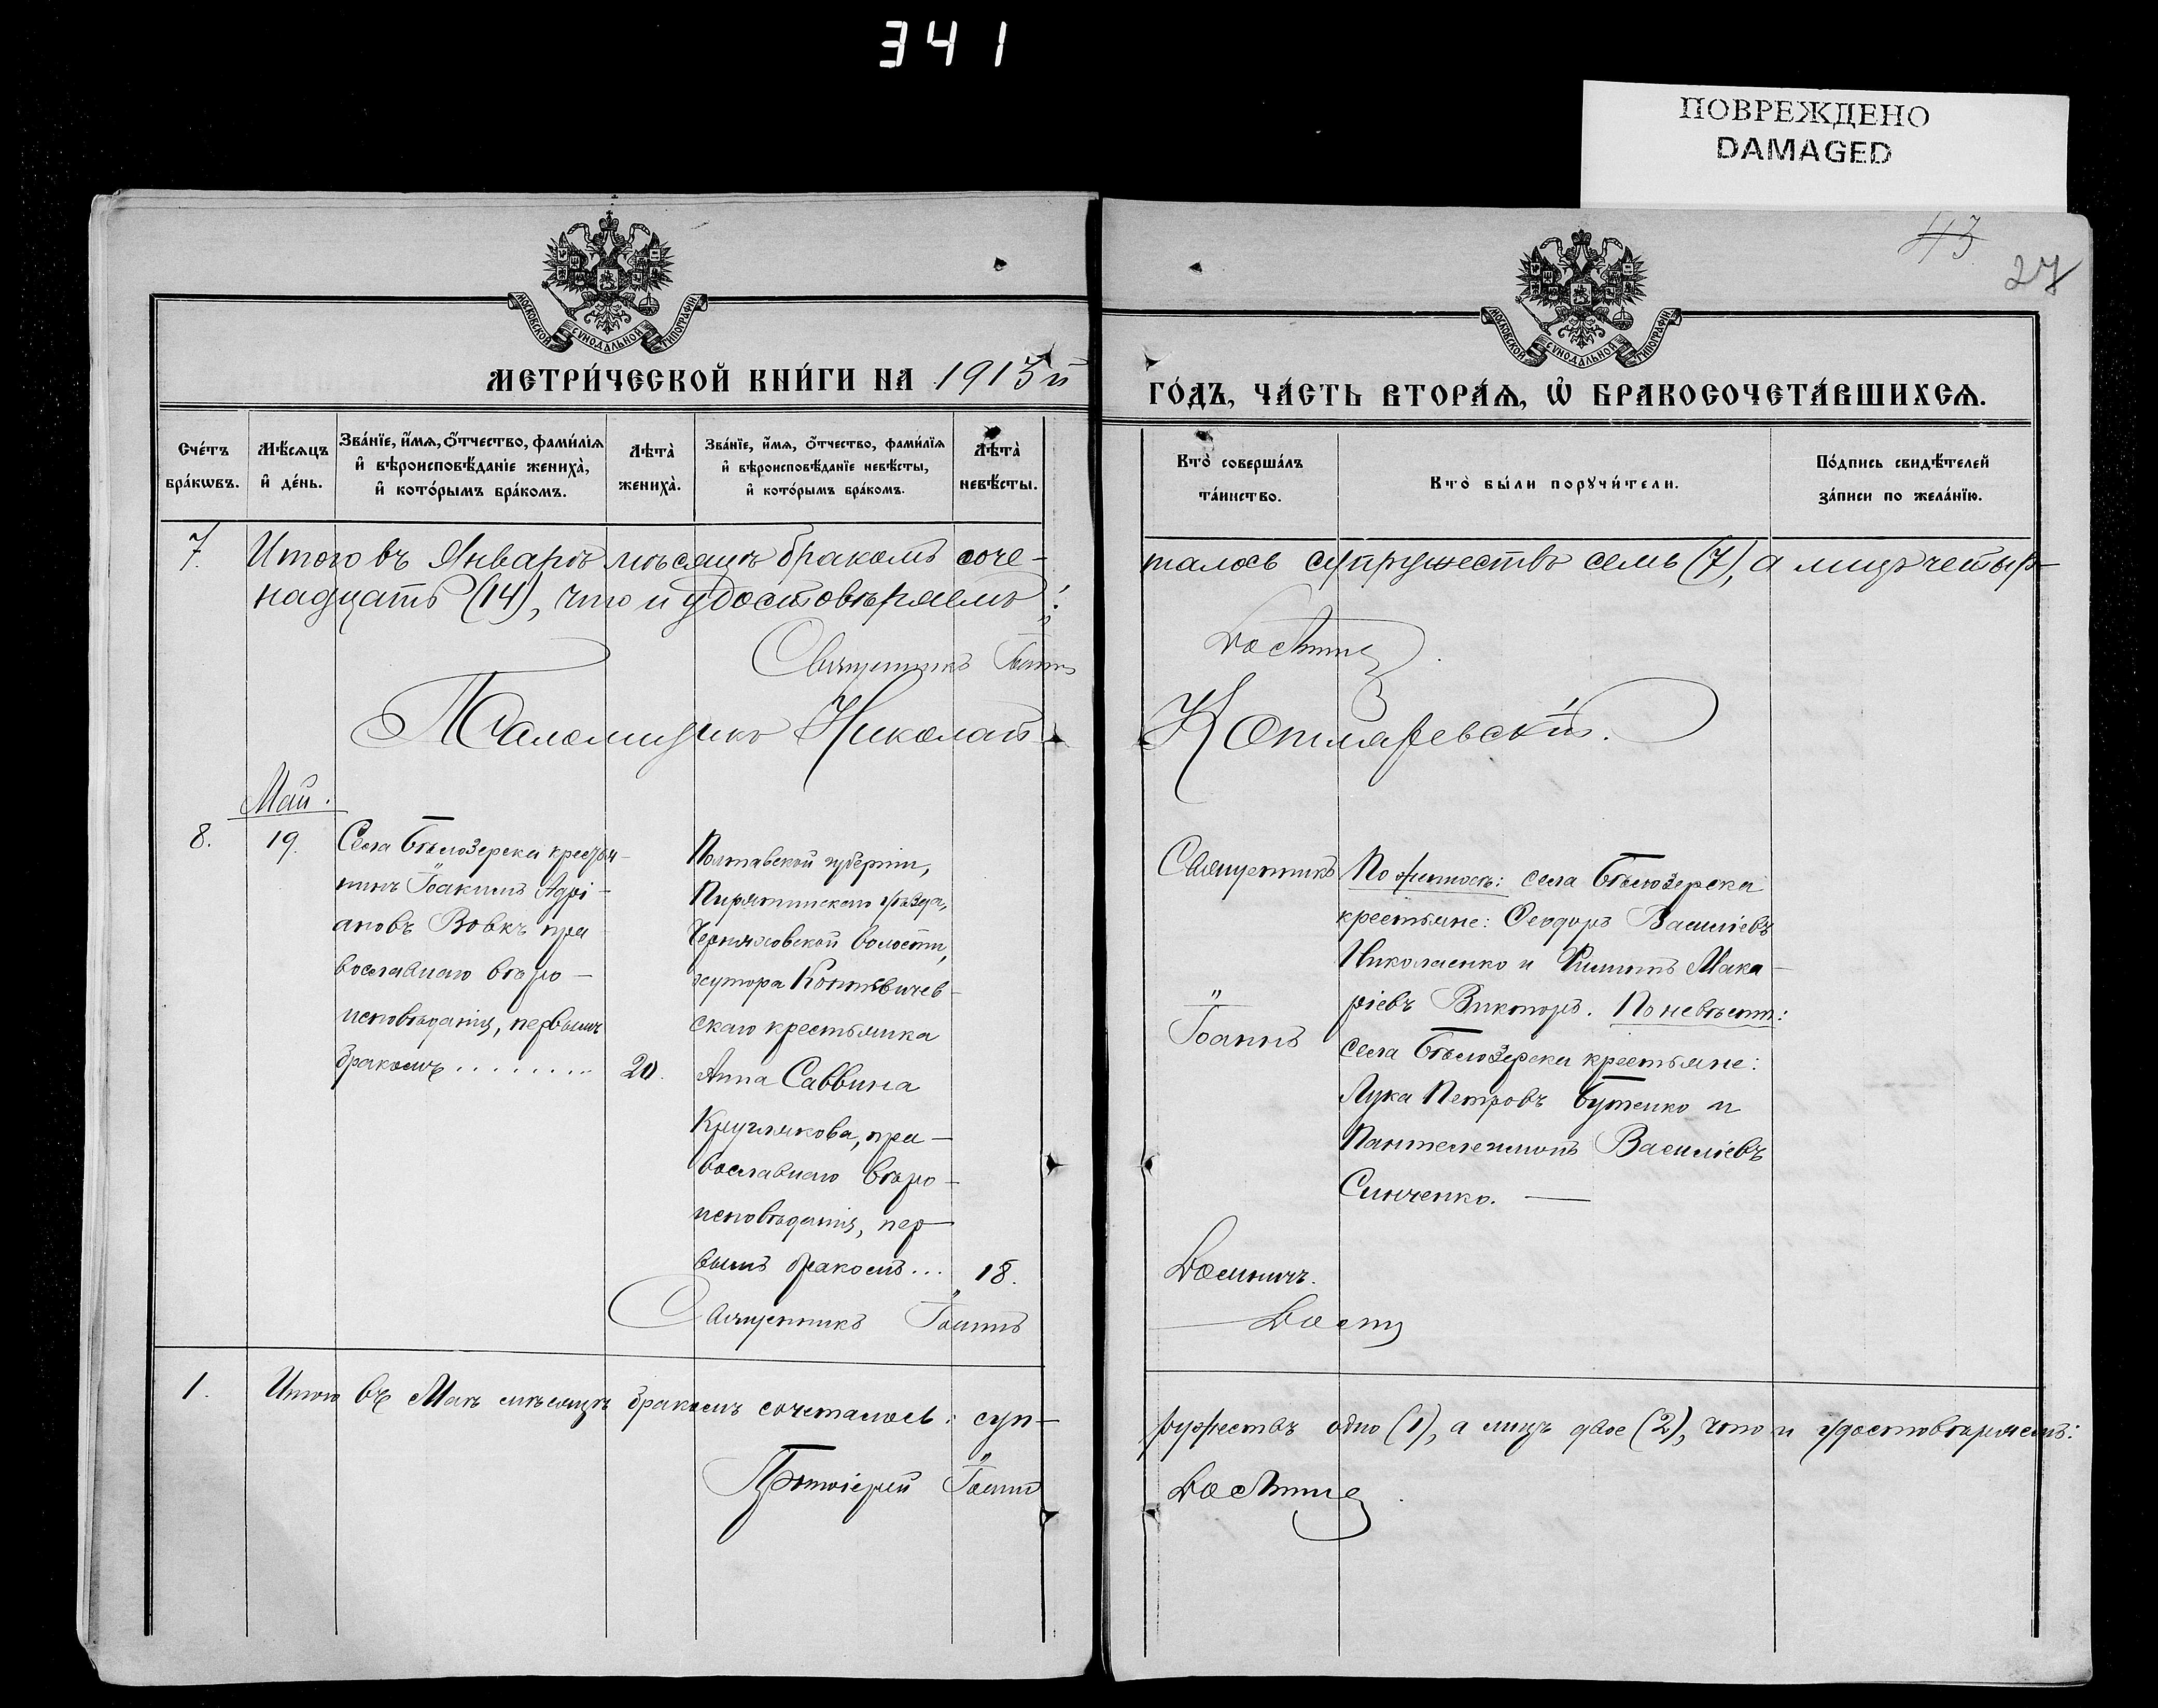 341
ПОВРЕЖДЕНО
DAMAGED
43
27
МОСКОВСКОЙ СѴНОДАЛЬНОЙ ТИПОГРАФІИ
МОСКОВСКОЙ СѴНОДАЛЬНОЙ ТИПОГРАФІИ
МЕТРИ́ЧЕСКОЙ КНИ́ГИ НА 1913 й
ГО́ДЪ, ЧА́СТЬ ВТОРА́Я, Ѽ БРАКОСОЧЕТА́ВШИХСЯ.
Сче́тъ бра́кѡвъ.
Мѣ́сяцъ и҆ де́нь.
Зва́нїе, и҆́мя, ѻ҆́тчество, фами́лїя и҆ вѣроисповѣ́данїе жениха̀, и҆ кото́рымъ бра́комъ.
Лѣта̀ жениха̀.
Зва́нїе, и҆́мя, ѻ҆́тчество, фами́лїя и҆ вѣроисповѣ́данїе невѣ́сты, и҆ кото́рымъ бра́комъ.
Лѣта̀ невѣ́сты.
Кто̀ соверша́лъ та́инство.
Кто̀ бы́ли порꙋчи́тели.
По́дпись свидѣ́телей за́писи по жела́нїю.
7. Итого въ Январѣ мѣсяцѣ бракомъ соче-
талось супружествъ семь (7), а лицъ четыр-
надцать (14), что и удостовѣряемъ:
Священникъ Іоаннъ
Псаломщикъ Николай Котляревскій.
Май.
8. 19.
Села Бѣлозерки крестья-
нинъ Іоакимъ Адрі-
ановъ Вовкъ пра
вославнаго вѣро-
исповѣданія, первымъ
бракомъ ........ 20.
Полтавской губерніи,
Пирятинскаго уѣзда,
волости,
хутора
скаго крестьянка
Анна Саввина
Круглякова, пра-
вославнаго вѣро-
исповѣданія, пер-
вымъ бракомъ... 18.
Священникъ Іоаннъ
Священникъ
Іоаннъ
По женихѣ: села Бѣлозерки
крестьяне: Ѳеодоръ Васильевъ
Николаенко и Филиппъ Мака-
ріевъ Викторъ. По невѣстѣ:
села Бѣлозерки крестьяне:
Лука Петровъ Бутенко и
Пантелеимонъ Васильевъ
Синченко.
1. Итого въ Маѣ мѣсяцѣ бракомъ сочеталось: суп-
ружествъ одно (1), а лицъ двое (2), что и удостовѣряемъ:
Протоіерей Іоаннъ